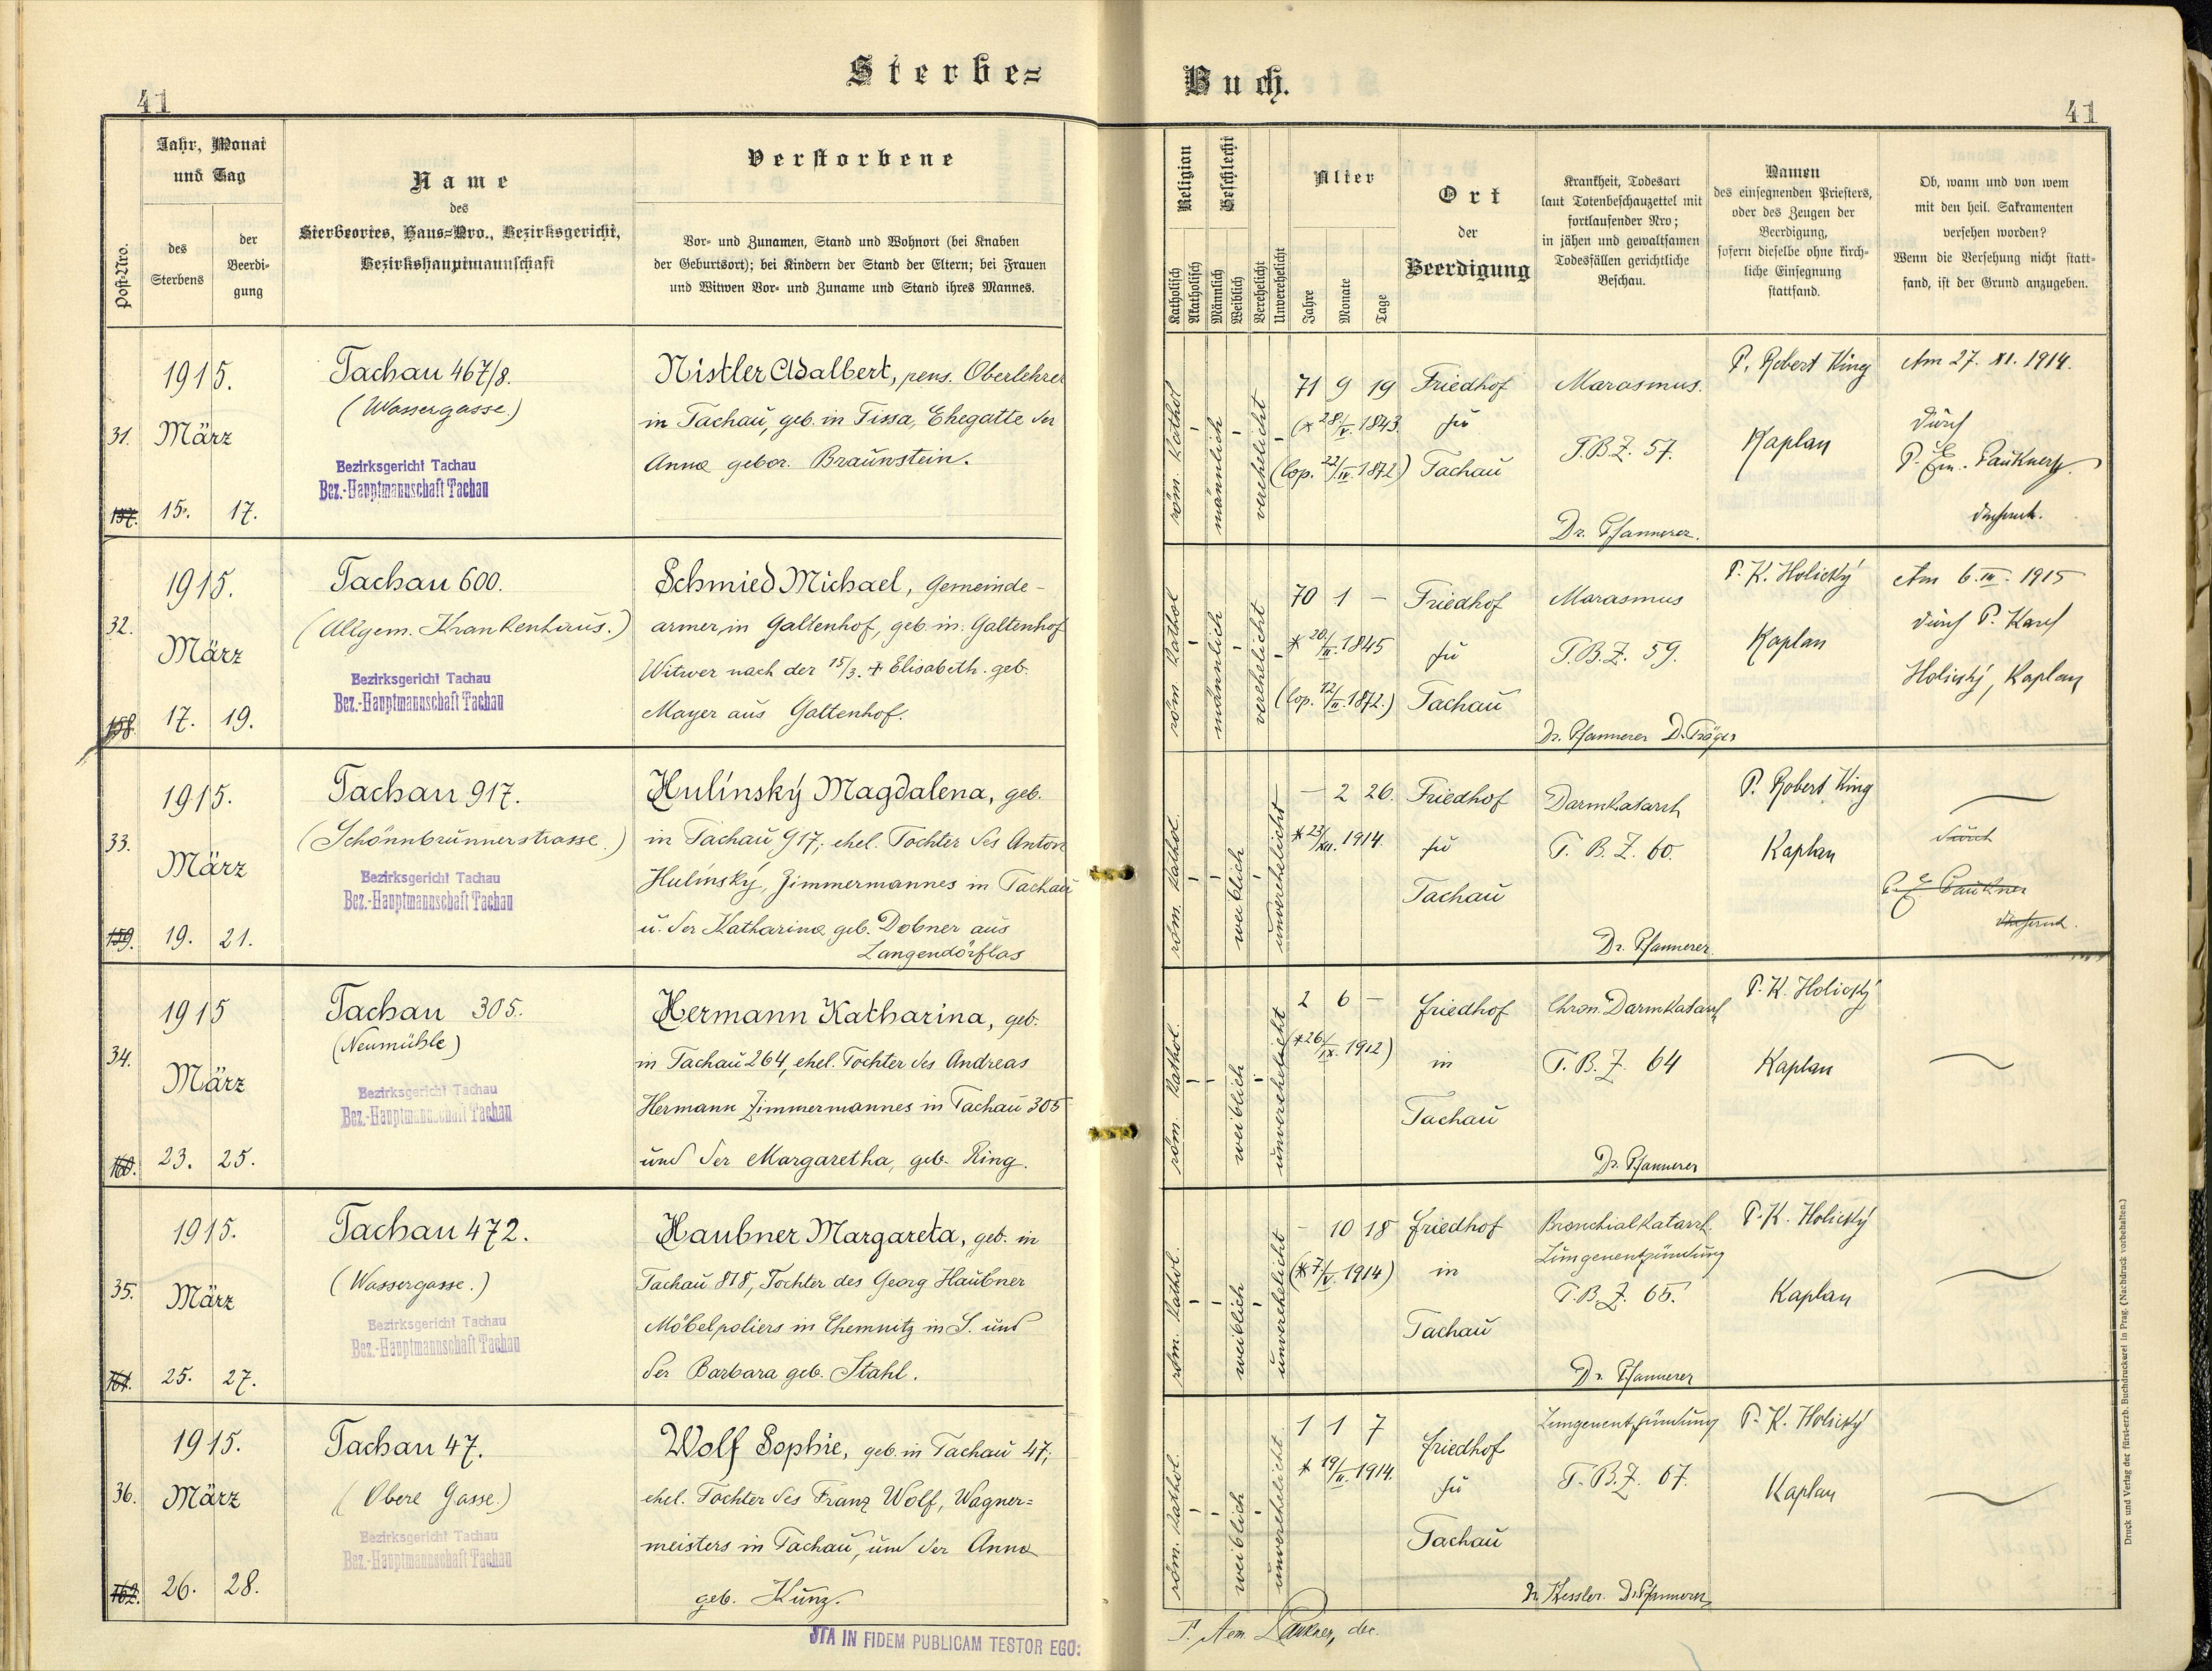 Sterbe=
Buch.
41
41
Post-Nro.
Jahr, Monat
und Tag
des
Sterbens
der
Beerdi-
gung
Name
des
Sterbeortes, Haus-Nro., Bezirksgericht,
Bezirkshauptmannschaft
Verstorbene
Vor- und Zunamen, Stand und Wohnort (bei Knaben
der Geburtsort); bei Kindern der Stand der Eltern; bei Frauen
und Witwen Vor- und Zuname und Stand ihres Mannes.
Religion
Katholisch
Akatholisch
Geschlecht
Männlich
Weiblich
Verehelicht
Unverehelicht
Alter
Jahre
Monate
Tage
Ort
der
Beerdigung
Krankheit, Todesart
laut Totenbeschauzettel mit
fortlaufender Nro;
in jähen und gewaltsamen
Todesfällen gerichtliche
Beschau.
Namen
des einsegnenden Priesters,
oder des Zeugen der
Beerdigung,
sofern dieselbe ohne kirch-
liche Einsegnung
stattfand.
Ob, wann und von wem
mit den heil. Sakramenten
versehen worden?
Wenn die Versehung nicht statt-
fand, ist der Grund anzugeben.
31.
157.
1915.
März
15. 17.
Tachau 467/8.
(Wassergasse.)
Bezirksgericht Tachau
Bez.-Hauptmannschaft Tachau
Nistler Adalbert, pens. Oberlehrer
in Tachau, geb. in Tissa, Ehegatte der
Anna gebor. Braunstein.
röm. kathol
männlich
verehelicht
71 9 19
(* 28./V. 1843.
(cop. 22/IV. 1872)
Friedhof
zu
Tachau
Marasmus.
T.B.Z. 57.
Dr. Pfannerer.
P. Robert King
Kaplan
Am 27. XI. 1914.
durch
P. Em. Paukner,
Dechant.
32.
158.
1915.
März
17. 19.
Tachau 600.
(Allgem. Krankenhaus.)
Bezirksgericht Tachau
Bez.-Hauptmannschaft Tachau
Schmied Michael, Gemeinde-
armer in Galtenhof, geb. in Galtenhof
Witwer nach der 15/3. + Elisabeth geb.
Mayer aus Galtenhof.
röm. kathol
männlich
verehelicht
70 1 –
* 20./II. 1845
(cop. 12/II. 1872.)
Friedhof
zu
Tachau
Marasmus
T.B.Z. 59.
Dr. Pfannerer D. Träger
P. K. Holický
Kaplan
Am 6. III. 1915
durch P. Karl
Holický, Kaplan
33.
159.
1915.
März
19. 21.
Tachau 917.
(Schönnbrunnerstrasse.)
Bezirksgericht Tachau
Bez.-Hauptmannschaft Tachau
Hulínský Magdalena, geb.
in Tachau 917; ehel. Tochter des Anton
Hulínský, Zimmermannes in Tachau
u. der Katharina geb. Dobner aus
Langendörflas
röm. kathol.
weiblich
unverehelicht
– 2 26.
* 23/XII. 1914.
Friedhof
zu
Tachau
Darmkatarrh
T. B. Z. 60.
Dr. Pfannerer
P. Robert King
Kaplan
durch
P. E. Paukner
Dechant.
34.
160.
1915
März
23. 25.
Tachau 305.
(Neumühle)
Bezirksgericht Tachau
Bez.-Hauptmannschaft Tachau
Hermann Katharina, geb.
in Tachau 264, ehel. Tochter des Andreas
Hermann Zimmermannes in Tachau 305
und der Margaretha, geb. Ring.
röm. kathol.
weiblich
unverehelicht
2 6 –
(* 26./IX. 1912)
Friedhof
in
Tachau
Chron. Darmkatarrh
T. B. Z. 64
Dr. Pfannerer
P. K. Holický
Kaplan
35.
161.
1915.
März
25. 27.
Tachau 472.
(Wassergasse.)
Bezirksgericht Tachau
Bez.-Hauptmannschaft Tachau
Haubner Margareta, geb. in
Tachau 818, Tochter des Georg Haubner
Möbelpoliers in Chemnitz in S. und
der Barbara geb. Stahl.
röm. kathol.
weiblich
unverehelicht
– 10 18
(* 7/V. 1914)
Friedhof
in
Tachau
Bronchialkatarrh.
Lungenentzündung
T.B.Z. 65.
Dr. Pfannerer
P. K. Holický
Kaplan
36.
162.
1915.
März
26. 28.
Tachau 47.
(Obere Gasse.)
Bezirksgericht Tachau
Bez.-Hauptmannschaft Tachau
Wolf Sophie, geb. in Tachau 47;
ehel. Tochter des Franz Wolf, Wagner=
meisters in Tachau, und der Anna
geb. Kunz.
röm. kathol.
weiblich
unverehelicht
1 1 7
* 19/II. 1914.
Friedhof
zu
Tachau
Lungenentzündung
T. B. Z. 67.
Dr. Kessler. Dr. Pfannerer
P. K. Holický
Kaplan
ITA IN FIDEM PUBLICAM TESTOR EGO:
P. Aem. Paukner, dec.
Druck und Verlag der fürst-erzb. Buchdruckerei in Prag. (Nachdruck vorbehalten.)